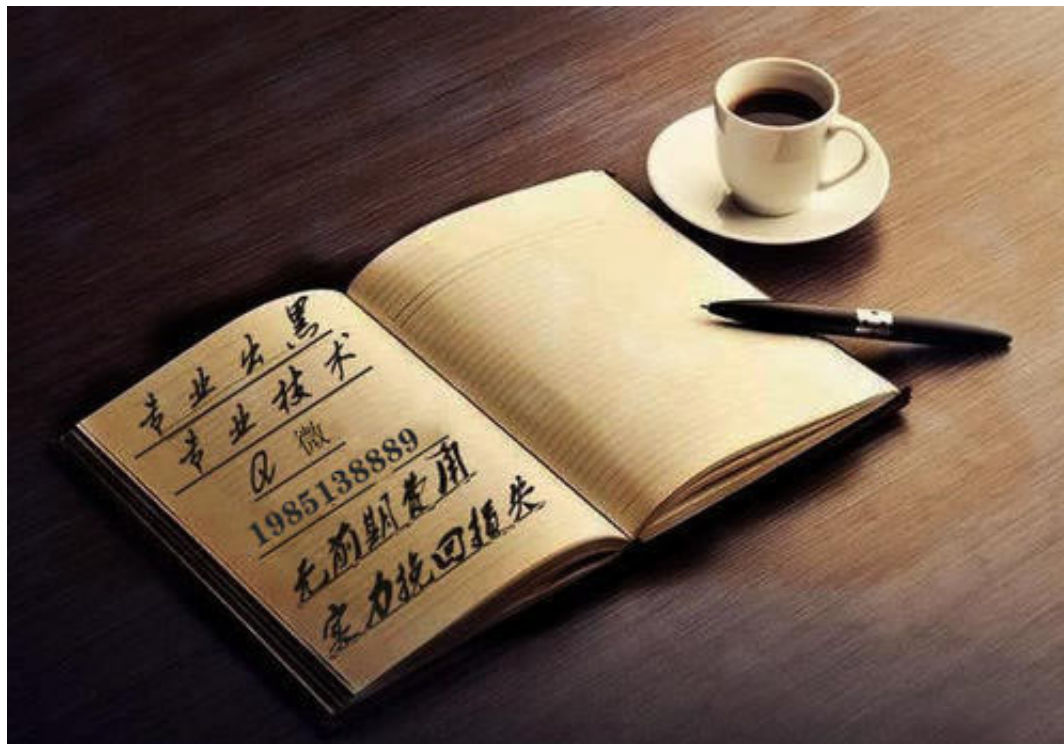 专业出黑
专业技术
Q 微
1985138889
无前期费用
实力挽回损失